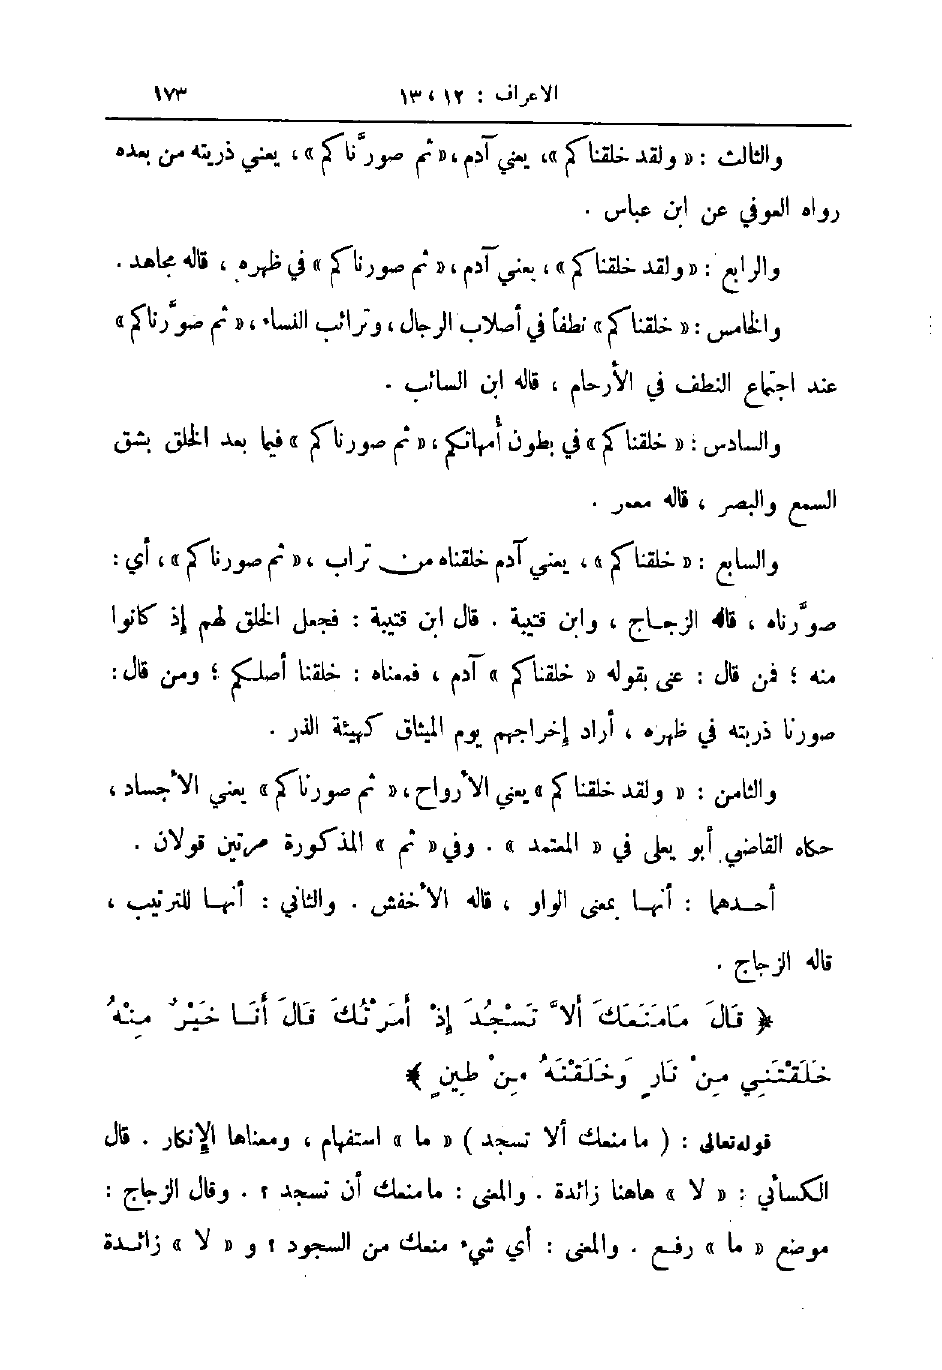 الاعراف : ١٢ ، ١٣ ١٧٣
والثالث : « ولقد خلقناكم »، يعني آدم ، « ثم صوَّرناكم » ، يعني ذريته من بعده
رواه العوفي عن ابن عباس .
والرابع : « ولقد خلقناكم » ، يعني آدم ، « ثم صورناكم » في ظهره ، قاله مجاهد .
والخامس : « خلقناكم » نطفاً في أصلاب الرجال ، وترائب النساء ، « ثم صوَّرناكم »
عند اجتماع النطف في الأرحام ، قاله ابن السائب .
والسادس : « خلقناكم » في بطون أُمهاتكم ، « ثم صورناكم » فيما بعد الخلق بشق
السمع والبصر ، قاله معمر .
والسابع : « خلقناكم » ، يعني آدم خلقناه من تراب ، « ثم صورناكم » ، أي :
صوَّرناه ، قاله الزجاج ، وابن قتيبة . قال ابن قتيبة : فجعل الخلق لهم إذ كانوا
منه ؛ فمن قال : عنى بقوله « خلقناكم » آدم ، فمعناه : خلقنا أصلكم ؛ ومن قال :
صورنا ذريته في ظهره ، أراد إخراجهم يوم الميثاق كهيئة الذر .
والثامن : « ولقد خلقناكم » يعني الأرواح ، « ثم صورناكم » يعني الأجساد ،
حكاه القاضي أبو يعلى في « المعتمد » . وفي « ثم » المذكورة مرتين قولان .
أحدهما : أنها بمعنى الواو ، قاله الأخفش . والثاني : أنها للترتيب ،
قاله الزجاج .
﴿ قَالَ مَامَنَعَكَ أَلاَّ تَسْجُدَ إِذْ أَمَرْتُكَ قَالَ أَنَا خَيْرٌ مِنْهُ
خَلَقْتَنِي مِنْ نَارٍ وَخَلَقْتَهُ مِنْ طِينٍ ﴾
قوله تعالى : ( ما منعك ألا تسجد ) « ما » استفهام ، ومعناها الإنكار . قال
الكسائي : « لا » هاهنا زائدة . والمعنى : مامنعك أن تسجد ؟ . وقال الزجاج :
موضع « ما » رفع . والمعنى : أي شيء منعك من السجود ؟ و « لا » زائدة